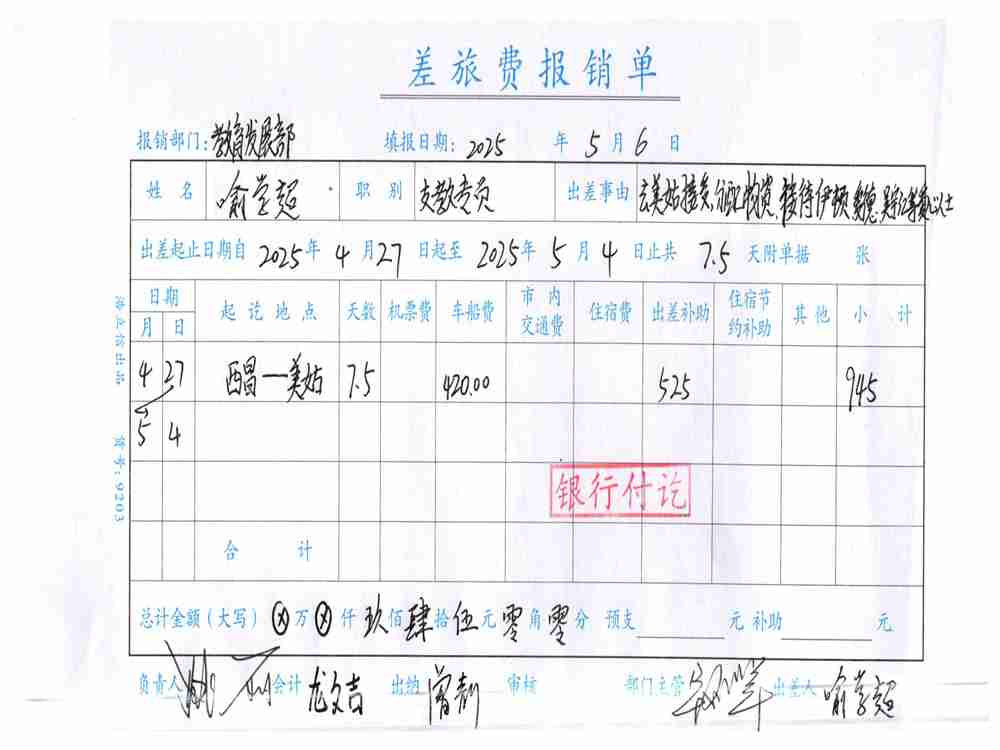 差旅费报销单
报销部门: 教育发展部 填报日期: 2025 年 5 月 6 日
姓 名 喻学超 职 别 支教专员 出差事由 去美姑接受、分配物资,接待伊顿
出差起止日期自 2025 年 4 月 27 日起至 2025 年 5 月 4 日止共 7.5 天附单据 张
日期 起 讫 地 点 天数 机票费 车船费 市 内 交通费 住宿费 出差补助 住宿节 约补助 其 他 小 计
月 日
4 27 西昌—美姑 7.5 420.00 525 945
5 4
银行付讫
合 计
总计金额(大写) ⊗ 万 ⊗ 仟 玖 佰 肆 拾 伍 元 零 角 零 分 预支 元 补助 元
负责人 会计 龙文吉 出纳 审核 部门主管 出差人 喻学超
货号: 9203